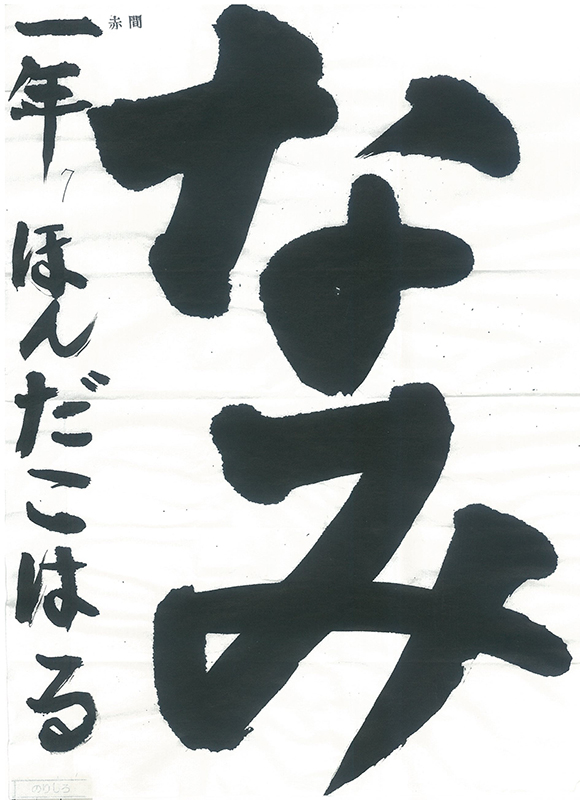 なみ
赤間
一年 ほんだこはる
7
のりしろ